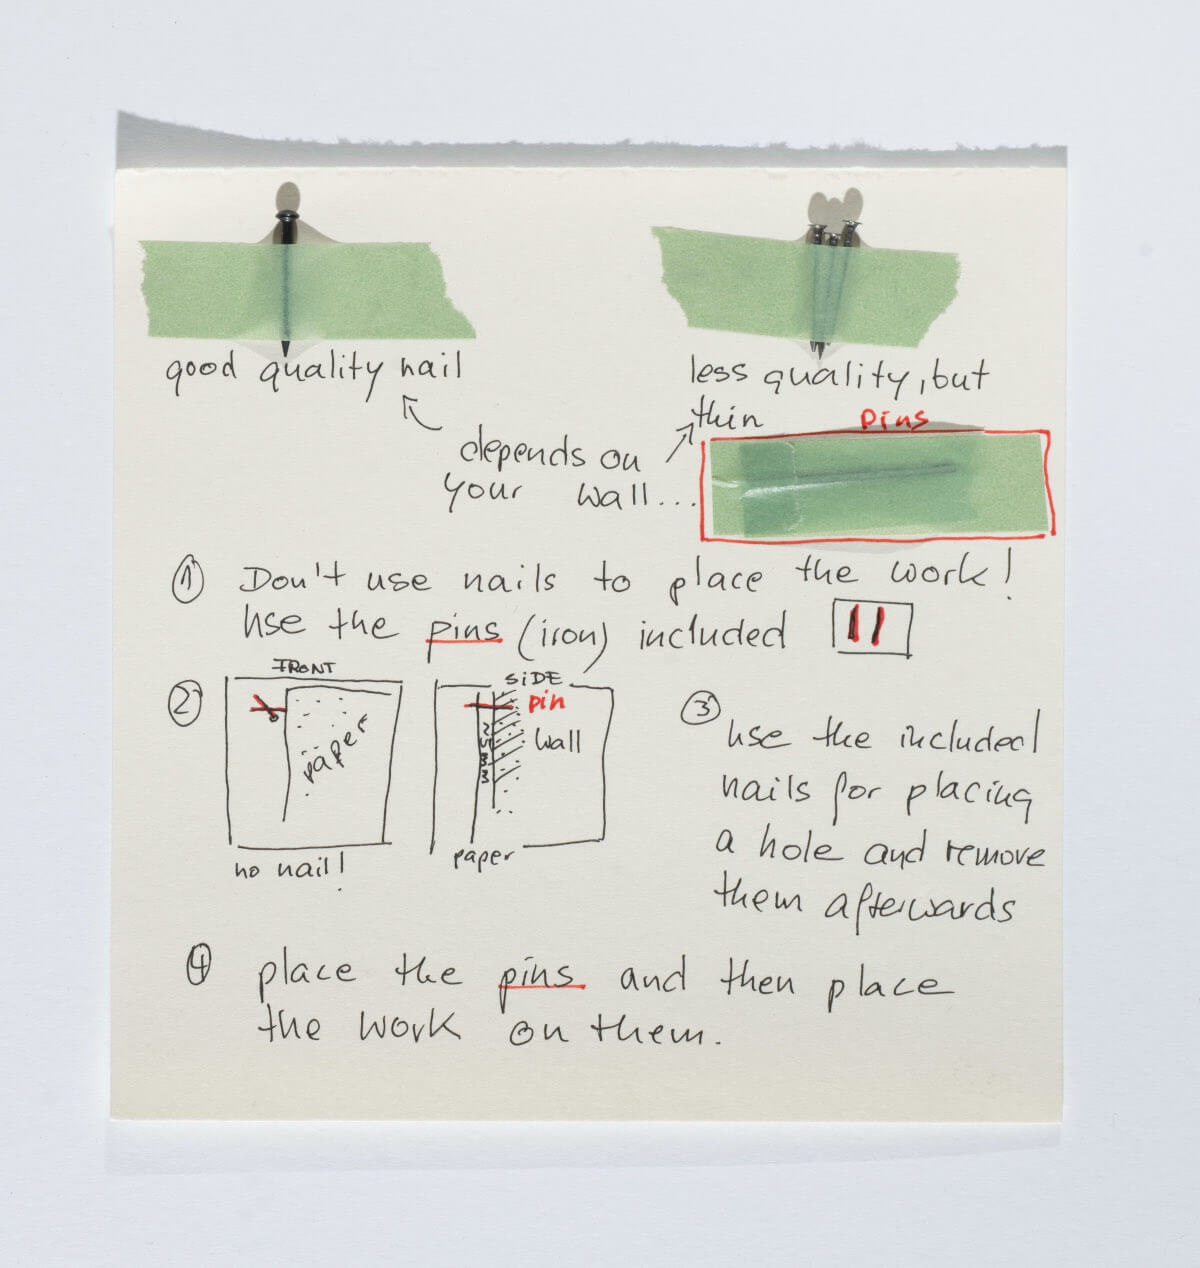 good quality nail
less quality, but
thin
pins
depends on
your wall...
① Don't use nails to place the work!
use the pins (iron) included
②
FRONT
paper
no nail!
SIDE
pin
wall
paper
③ use the included
nails for placing
a hole and remove
them afterwards
④ place the pins and then place
the work on them.